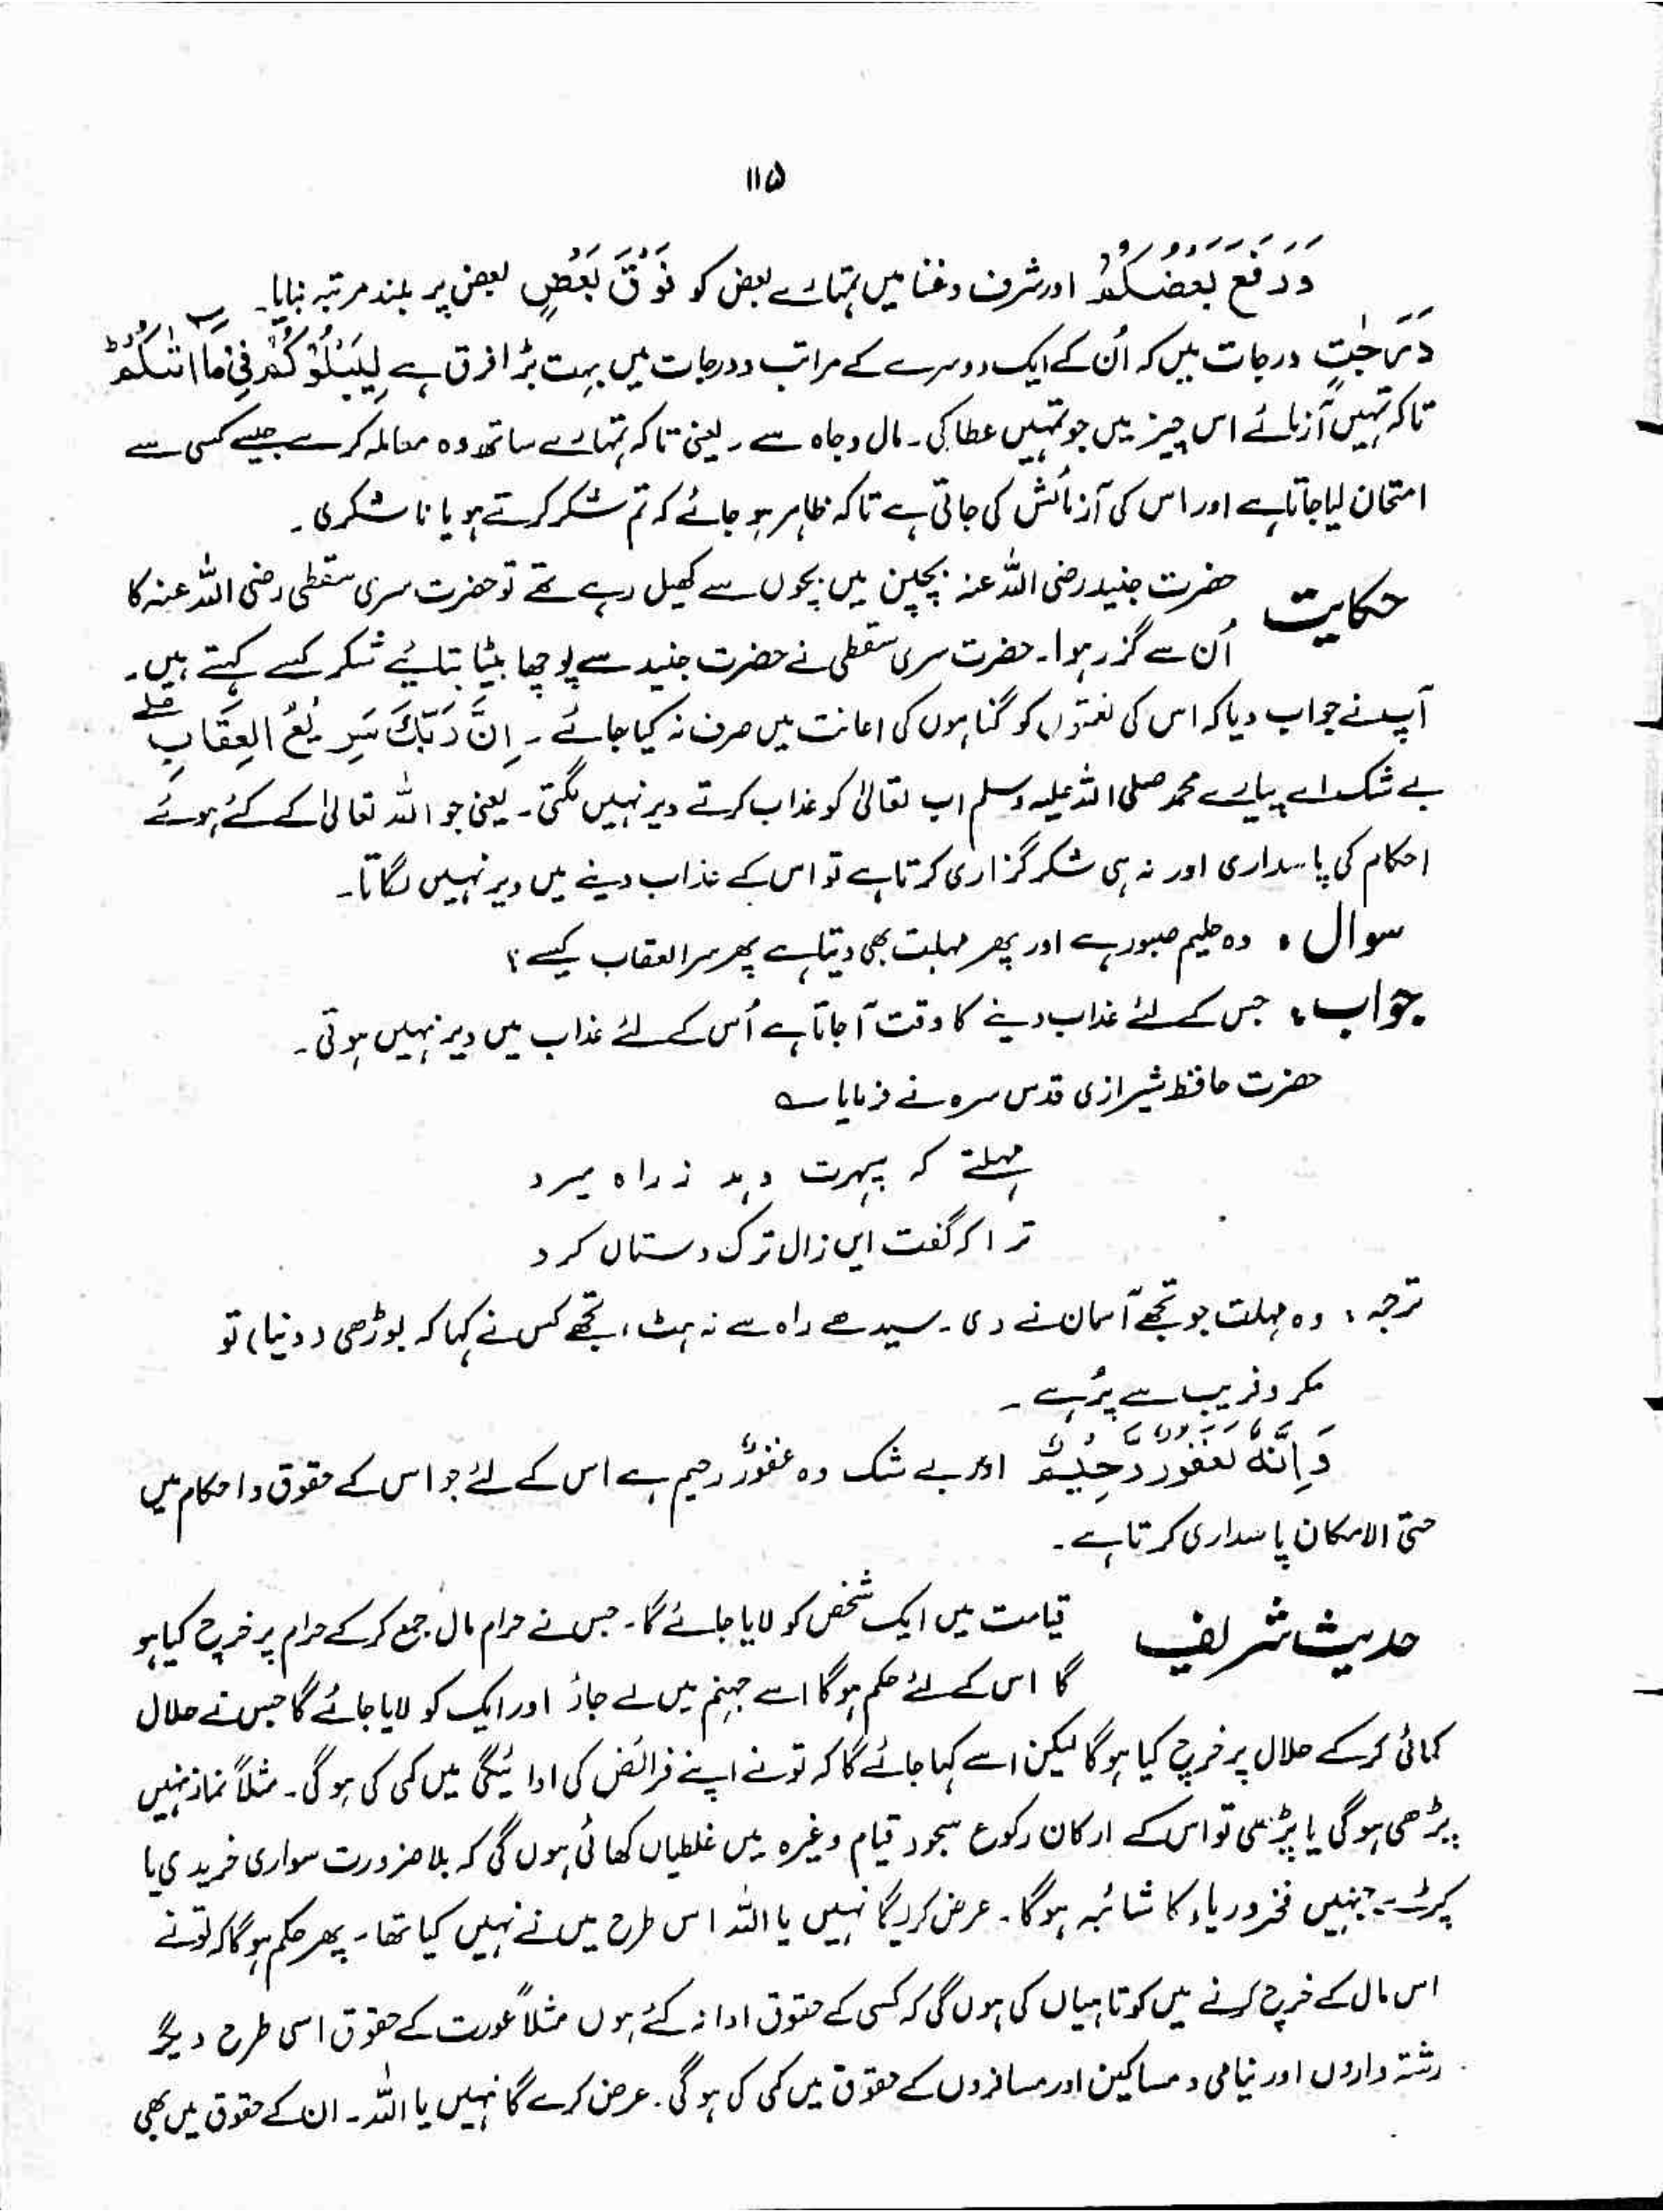 ۱۱۵
وَرَفَعَ بَعْضَكُمْ اور شرف و غنا میں تمہارے بعض کو فَوْقَ بَعْضٍ بعض پر بلند مرتبہ بنایا۔
دَرَجٰتٍ درجات میں کہ اُن کے ایک دوسرے کے مراتب و درجات میں بہت بڑا فرق ہے لِیَبْلُوَکُمْ فِیْ مَآ اٰتٰکُمْ ؕ
تاکہ تمہیں آزمائے اس چیز میں جو تمہیں عطا کی۔ مال و جاہ سے ۔ یعنی تاکہ تمہارے ساتھ وہ معاملہ کرے جیسے کسی سے
امتحان لیا جاتا ہے اور اس کی آزمائش کی جاتی ہے تاکہ ظاہر ہو جائے کہ تم شکر کرتے ہو یا ناشکری ۔
حکایت حضرت جنید رضی اللہ عنہ بچپن میں بچوں سے کھیل رہے تھے تو حضرت سری سقطی رضی اللہ عنہ کا
اُن سے گزر ہوا۔ حضرت سری سقطی نے حضرت جنید سے پوچھا بیٹا بتائیے شکر کسے کہتے ہیں۔
آپ نے جواب دیا کہ اس کی نعمتوں کو گناہوں کی اعانت میں صرف نہ کیا جائے ۔ اِنَّ رَبَّكَ سَرِیْعُ الْعِقَابِ ۖ
بے شک اے پیارے محمد صلی اللہ علیہ وسلم اب تعالیٰ کو عذاب کرتے دیر نہیں لگتی۔ یعنی جو اللہ تعالیٰ کے کئے ہوئے
احکام کی پاسداری اور نہ ہی شکر گزاری کرتا ہے تو اس کے عذاب دینے میں دیر نہیں لگاتا۔
سوال ، وہ حلیم صبور ہے اور پھر مہلت بھی دیتا ہے پھر سر العقاب کیسے ؟
جواب ، جس کے لئے عذاب دینے کا وقت آ جاتا ہے اُس کے لئے عذاب میں دیر نہیں ہوتی ۔
حضرت حافظ شیرازی قدس سرہ نے فرمایا ؎
مہلتے کہ پہرت دہد ز راہ میرد
ترا کہ گفت ایں زال ترک دستاں کرد
ترجمہ ، وہ مہلت جو تجھے آسمان نے دی ۔ سیدھے راہ سے نہ ہٹ ، تجھے کس نے کہا کہ بوڑھی (دنیا) تو
مکر و فریب سے پُر ہے ۔
وَاِنَّهٗ لَغَفُوْرٌ رَّحِیْمٌ اور بے شک وہ غفورٌ رحیم ہے اس کے لئے جو اس کے حقوق و احکام میں
حتی الامکان پاسداری کرتا ہے ۔
حدیث شریف قیامت میں ایک شخص کو لایا جائے گا۔ جس نے حرام مال جمع کر کے حرام پر خرچ کیا ہو
گا اس کے لئے حکم ہوگا اسے جہنم میں لے جاؤ اور ایک کو لایا جائے گا جس نے حلال
کمائی کر کے حلال پر خرچ کیا ہوگا لیکن اسے کہا جائے گا کہ تو نے اپنے فرائض کی ادائیگی میں کمی کی ہوگی ۔ مثلاً نماز نہیں
پڑھی ہوگی یا پڑھی تو اس کے ارکان رکوع سجود قیام وغیرہ میں غلطیاں کھائی ہوں گی کہ بلا ضرورت سواری خریدی یا
کپڑے جنہیں فخر و ریاء کا شائبہ ہوگا ۔ عرض کریگا نہیں یا اللہ اس طرح میں نے نہیں کیا تھا ۔ پھر حکم ہوگا کہ تو نے
اس مال کے خرچ کرنے میں کوتاہیاں کی ہوں گی کہ کسی کے حقوق ادا نہ کئے ہوں مثلاً عورت کے حقوق اسی طرح دیگر
رشتہ داروں اور یتامی و مساکین اور مسافروں کے حقوق میں کمی کی ہوگی ۔ عرض کرے گا نہیں یا اللہ ۔ ان کے حقوق میں بھی